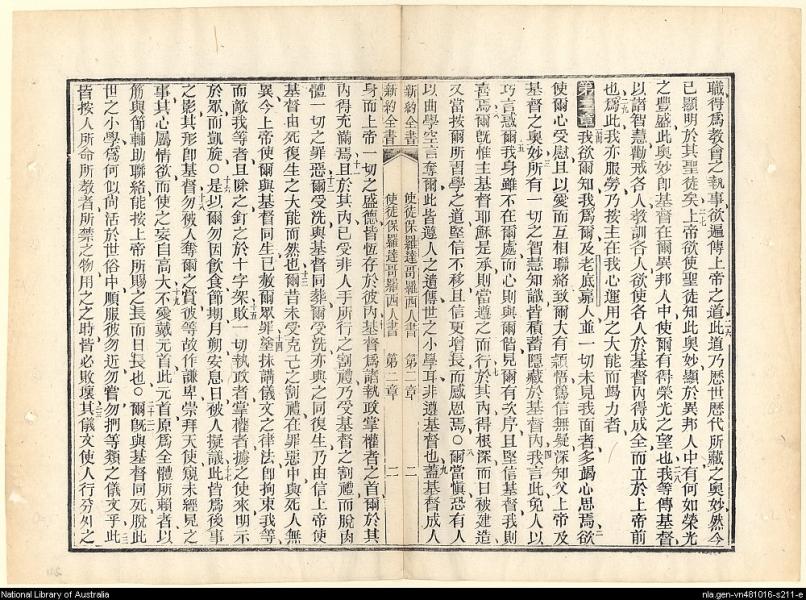 職得爲教會之執事欲遍傳上帝之道此道乃歷世歷代所藏之奧妙然今
已顯明於其聖徒矣上帝欲使聖徒知此奧妙顯於異邦人中有何如榮光
之豐盛此奧妙卽基督在爾異邦人中使爾有得榮光之望也我等傳基督
以諸智慧勸戒各人教訓各人欲使各人於基督內得成全而立於上帝前
也爲此我亦服勞乃按主在我心運用之大能而竭力者
第二章我欲爾知我爲爾及老底嘉人並一切未見我面者多竭心思焉欲
使爾心受慰且以愛而互相聯絡致爾大有穎悟篤信無疑深知父上帝及
基督之奧妙所有一切之智慧知識皆積蓄隱藏於基督內我言此免人以
巧言惑爾我身雖不在爾處而心則與爾偕見爾有次序且堅信基督我則
喜焉爾旣惟主基督耶穌是承則當遵之而行於其內得根深而日被建造
又當按爾所習學之道堅信不移且信更增長而感恩焉○爾當愼恐有人
以曲學空言奪爾此皆遵人之遺傳世之小學耳非遵基督也蓋基督成人
新約全書 使徒保羅達哥羅西人書 第二章 二
新約全書 使徒保羅達哥羅西人書 第二章 二
身而上帝一切之盛德皆恆存於彼內基督爲諸執政掌權者之首爾於其
內得充滿焉且於其內已受非人手所行之割禮乃受基督之割禮而脫肉
體一切之罪惡爾受洗與基督同葬爾受洗亦與之同復生乃由信上帝使
基督由死復生之大能而然也爾昔未受克己之割禮在罪惡中與死人無
異今上帝使爾與基督同生已赦爾眾罪塗抹講儀文之律法卽拘束我等
而敵我等者且除之釘之於十字架敗一切執政者掌權者擄之使來明示
於眾而凱旋○是以爾勿因飲食節期月朔安息日被人擬議此皆爲後事
之影其形卽基督勿被人奪爾之賞彼等故作謙卑崇拜天使窺未經見之
事其心屬情欲而使之妄自高大不愛戴元首此元首原爲全體所賴者以
筋與節輔助聯絡能按上帝所賜之長而日長也○爾旣與基督同死脫此
世之小學爲何似尚活於世俗中順服彼勿近勿嘗勿捫等類之儀文乎此
皆按人所命所教者所禁之物用之之時皆必敗壞其儀文使人行分外之
National Library of Australia
nla.gen-vn481016-s211-e